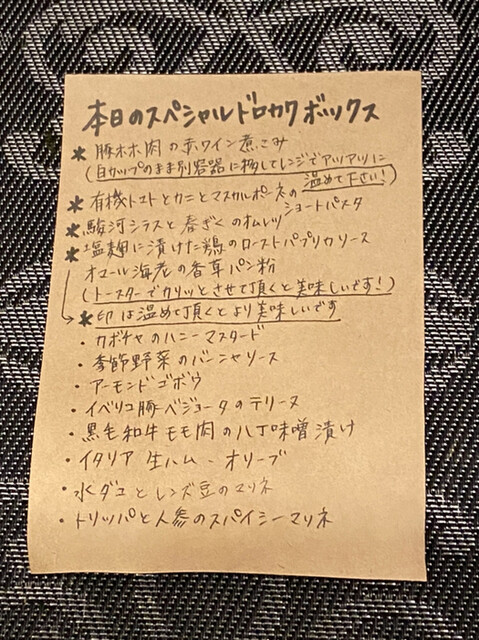 本日のスペシャルドロカワボックス
* 豚ホホ肉の赤ワイン煮こみ
(白カップのまま別容器に移してレンジでアツアツに
温めて下さい!)
* 有機トマトとカニとマスカルポーネの
ショートパスタ
* 駿河シラスと春ぎくのオムレツ
* 塩麹に漬けた鶏のローストパプリカソース
オマール海老の香草パン粉
(トースターでカリッとさせて頂くと美味しいです!)
* 印は温めて頂くとより美味しいです
・カボチャのハニーマスタード
・季節野菜のバーニャソース
・アーモンドゴボウ
・イベリコ豚ベジョータのテリーヌ
・黒毛和牛モモ肉の八丁味噌漬け
・イタリア生ハム・オリーブ
・水ダコとレンズ豆のマリネ
・トリッパと人参のスパイシーマリネ